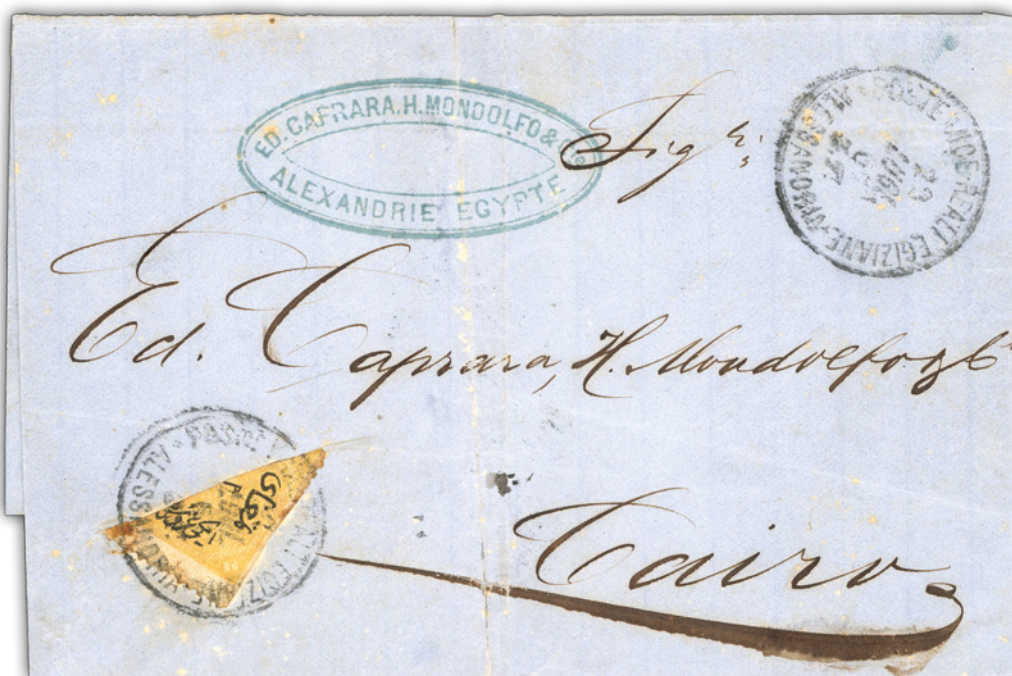 ED. CAFRARA.H.MONDOLFO &
ALEXANDRIE EGYPTE
Sigri
POSTE VICEREALI EGIZIANE
ALESSANDRIA
23
LUG
67
Ed. Caprara, H. Mondolfo & C
Cairo
POSTE VICEREALI EGIZIANE
ALESSANDRIA